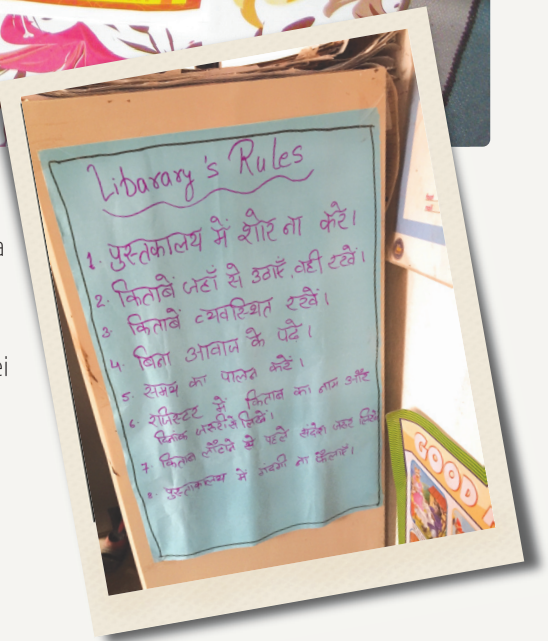 Libarary's Rules
1. पुस्तकालय में शोर ना करे।
2. किताबें जहाँ से उठाएँ, वही रखें।
3. किताबें व्यवस्थित रखें।
4. बिना आवाज के पढे।
5. समय का पालन करें।
6. रजिस्टर में किताब का नाम और
दिनांक जरूर से लिखें।
7. किताब लौटाने से पहले संदेश जरूर लिखे
8. पुस्तकालय में गंदगी ना फैलाएँ।
GOOD
a
ei